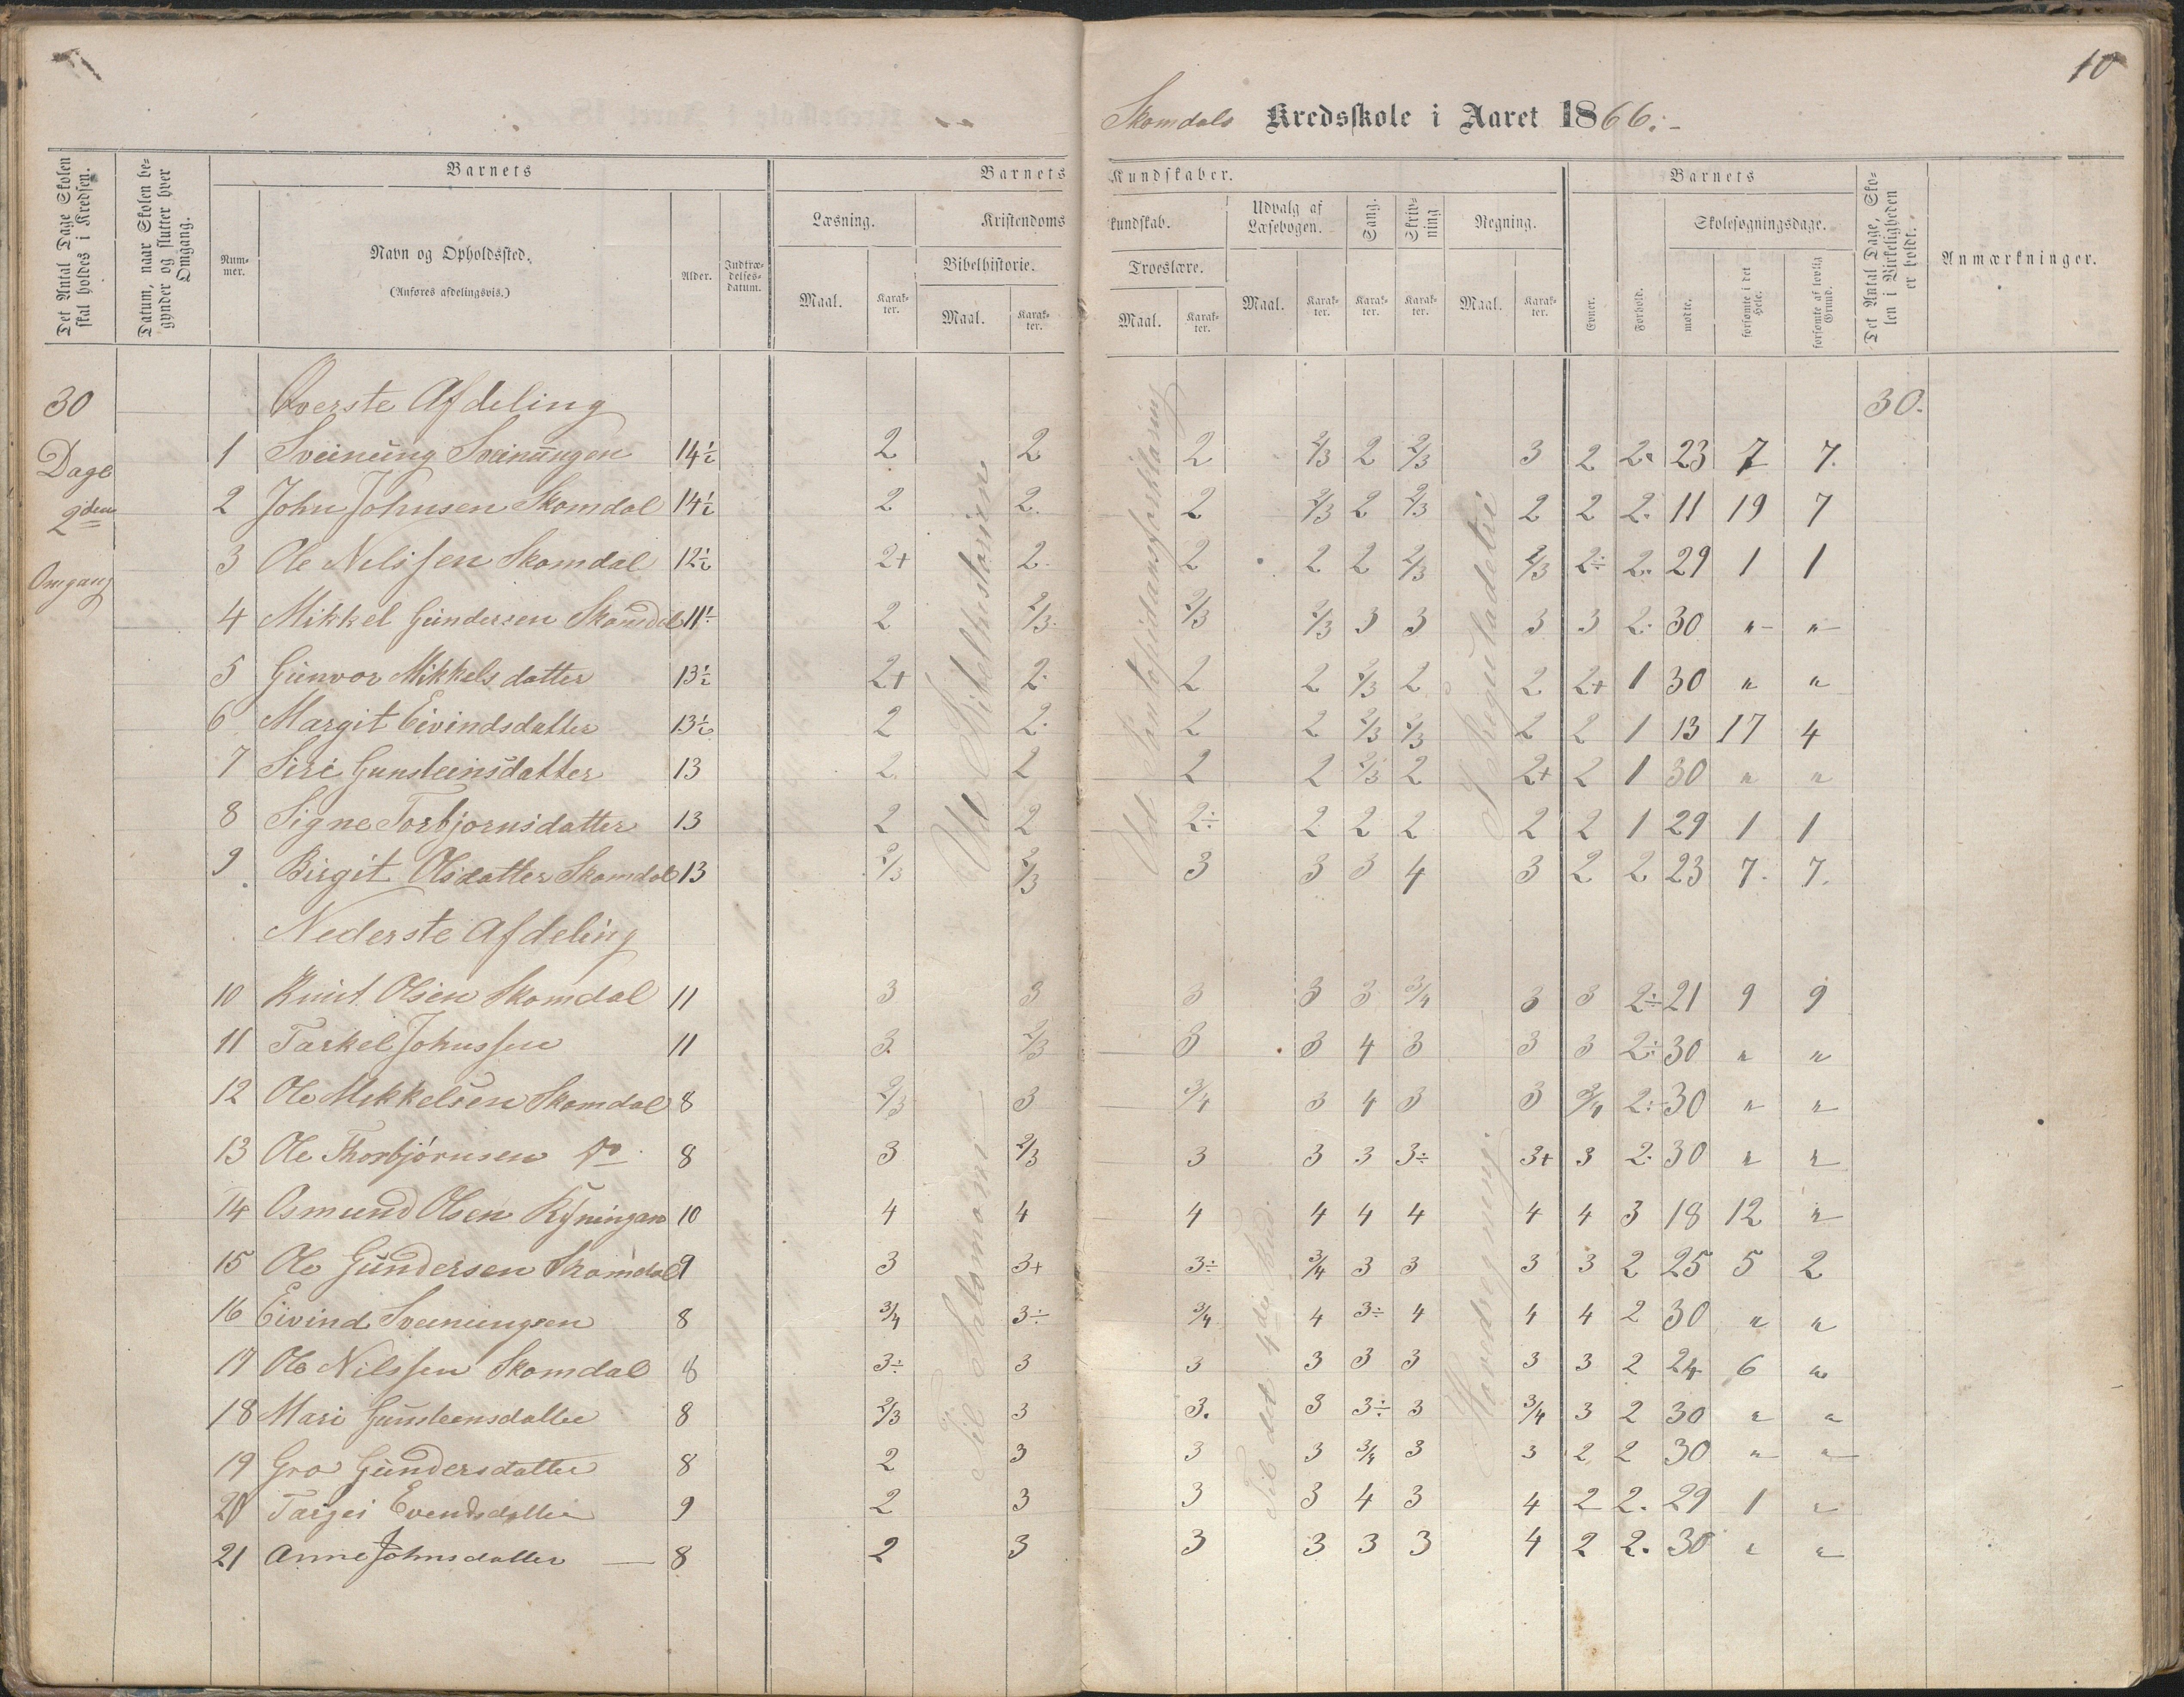 10
Skomdals Kredsskole i Aaret 1866.-
Det Antal Dage Skolen skal holdes i Kredsen.
Datum, naar Skolen begynder og slutter hver Omgang.
Barnets
Nummer.
Navn og Opholdssted.
(Anføres afdelingsvis.)
Alder.
Indtrædelsesdatum.
Barnets Kundskaber.
Læsning.
Maal.
Karakter.
Kristendomskundskab.
Bibelhistorie.
Maal.
Karakter.
Troeslære.
Maal.
Karakter.
Udvalg af Læsebogen.
Maal.
Karakter.
Sang.
Karakter.
Skrivning
Karakter.
Regning.
Maal.
Karakter.
Barnets
Evner.
Forhold.
Skolesøgningsdage.
mødte.
forsømte i det Hele.
forsømte af lovlig Grund.
Det Antal Dage, Skolen i Virkeligheden er holdt.
Anmærkninger.
30 Dage 2den Omgang
Øverste Afdeling 30.
1 Sveinung Sveinungen 14½ 2 2 2 2/3 2 2/3 3 2 2. 23 7 7.
2 John Johnsen Skomdal 14½ 2 2. 2 2/3 2 2/3 2 2 2. 11 19 7
3 Ole Nilssen Skomdal 12½ 2+ 2. 2 2 2 2/3 2/3 2÷ 2. 29 1 1
4 Mikkel Gundersen Skomdal 11½ 2 2/3. 2/3 2/3 3 3 3 3 2. 30 " "
5 Gunvor Mikkelsdatter 13½ 2+ 2. 2 2 2/3 2 2 2+ 1 30 " "
6 Margit Eivindsdatter 13½ 2 2. 2 2 2/3 2/3 2 2 1 13 17 4
7 Siri Gunsteinsdatter 13 2. 2 2 2 2/3 2 2+ 2 1 30 " "
8 Signe Torbjornsdatter 13 2 2 2÷ 2 2 2 2 2 1 29 1 1
9 Birgit Olsdatter Skomdal 13 2/3 2/3 3 3 3 4 3 2 2 23 7. 7.
Ud Bibelhistorien
Ud Pontoppidans forklaring
I Reguladetri
Nederste Afdeling
10 Knut Olsen Skomdal 11 3 3 3 3 3 3/4 3 3 2÷ 21 9 9
11 Tarkel Johnssen 11 3. 2/3 3 3 4 3 3 3 2÷ 30 " "
12 Ole Mikkelsen Skomdal 8 2/3 3 3/4 3 4 3 3 3/4 2÷ 30 " "
13 Ole Thorbjørnsen do 8 3 2/3 3 3 3 3÷ 3+ 3 2. 30 " "
14 Osmund Olsen Ryningen 10 4 4 4 4 4 4 4 4 3 18 12 "
15 Ole Gundersen Skomdal 9 3 3+ 3÷ 3/4 3 3 3 3 2 25 5 2
16 Eivind Sveinungsen 8 3/4 3÷ 3/4 4 3÷ 4 4 4 2 30 " "
17 Ole Nilssen Skomdal 8 3÷ 3 3 3 3 3 3 3 2 24 6 "
18 Mari Gunsteensdatter 8 2/3 3 3. 3 3÷ 3 3/4 3 2 30 " "
19 Gro Gundersdatter 8 2 3 3 3 3/4 3 3 2 2 30 " "
20 Targei Evendsdatter 9 2 3 3 3 4 3 4 2 2. 29 1 "
21 Anne Johnsdatter — 8 2 3 3 3 3 3 4 2 2. 30 " "
Til Salomon
Til det 4de Bud.
Hovedregning.